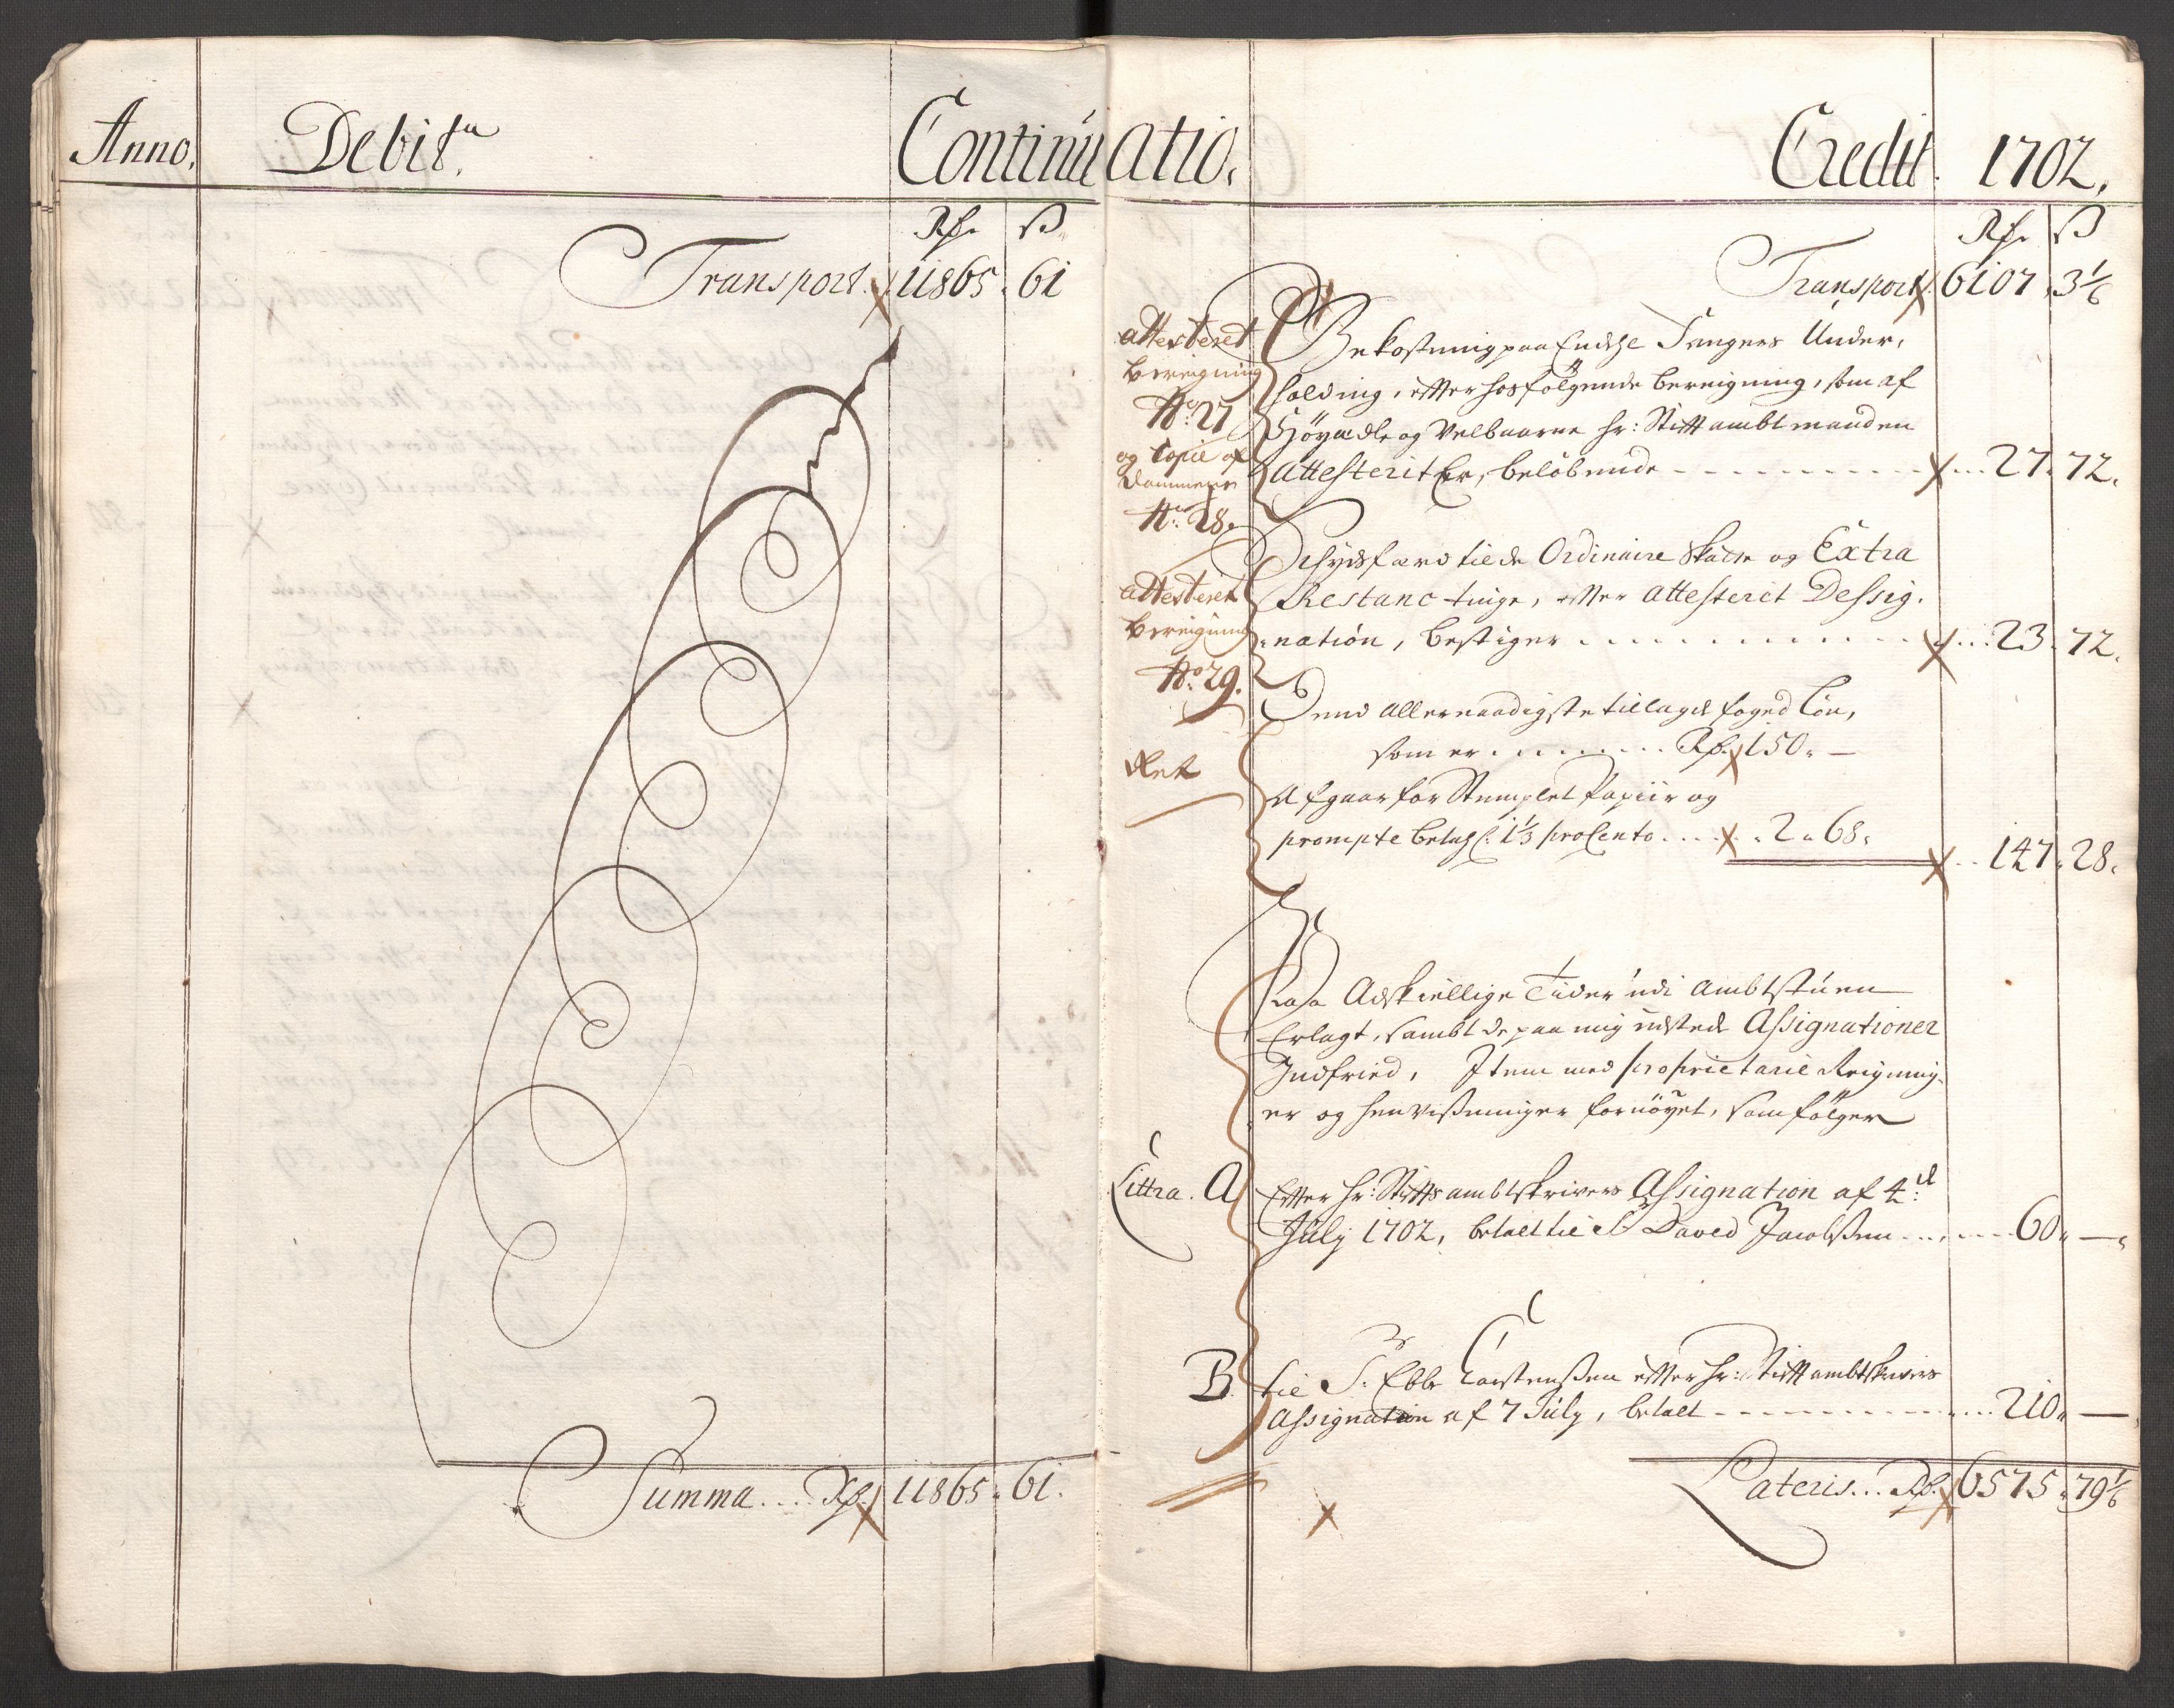 Anno.
Debit.
Continuatio.
Credit. 1702.
Rd. ß
Transport. 11865. 61
Summa.... Rd. 11865. 61.
Rd. ß
Transport 6107. 3 1/6
attesteret
bereigning
No. 27
og Copie af
dommene
No. 28.
Bekostning paa Endehl Fangers Under,
holding, effter hosfølgende bereigning, som af
Høyædle og Velbaarne hr: Stiftambtmanden
Attesterit Er, beløbende - - - 27. 72.
attesteret
bereigning
No. 29.
Schydsfærd til de Ordinaire Skatte og Extra
Restanc tinge, effter attesterit Dessig.
nation, bestiger . . . . 23. 72.
Ret
Dend allernaadigste tillagde foged Løn,
som er . . . . . . Rd. 150. —
Afgaar for Stemplet Papiir og
prompte betahl: 1 1/3 proCento . . . . 2. 68.
. . 147. 28.
Paa Adskiellige Tider udi Ambtstuen
Erlagt, sambt de paa mig udstede Assignationer
Indfried, Item med proprietarie Reigning-
er og henvissninger fornøyet, som følger
Littra. A
Effter hr: Stiftsambtskrivers Assignation af 4de
July 1702, betalt til Sr David Jacobssen . . . . 60. —.
B.
til Sr. Ebbe Carstenssen effter hr: Stiftambtskrivers
Assignation af 7 July, betalt - - - . . . 210. —
Lateris... Rd. 6575. 79 1/6